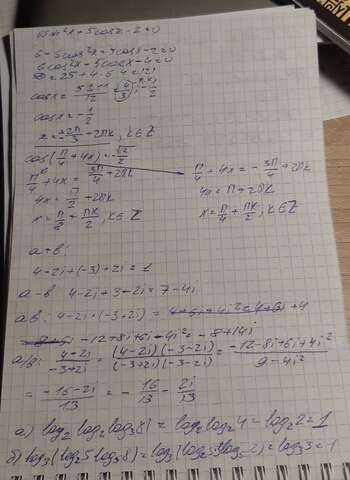 6sin²x+5cosx-2=0
6-6cos²x+5cosx-2=0
6cos²x-5cosx-4=0
D=25+4·6·4=121
cosx=
cosx=-1/2
x=±2π/3+2πk, k∈Z
cos(π/4+4x)=-√2/2
π/4+4x=3π/4+2πk
π/4+4x=-3π/4+2πk
4x=π/2+2πk
4x=π+2πk
x=π/8+πk/2, k∈Z
x=π/4+πk/2, k∈Z
a+b:
4-2i+(-3)+2i=1
a-b 4-2i+3-2i=7-4i
ab: 4-2i·(-3+2i)=
-12+8i+6i-4i²=-8+14i
a/b: (4-2i)/(-3+2i)=(4-2i)(-3-2i)/(-3+2i)(-3-2i)=(-12-8i+6i+4i²)/(9-4i²)
=(-16-2i)/13=-16/13-2i/13
а) log₂log₂log₃81=log₂log₂4=log₂2=1
б) log₃(